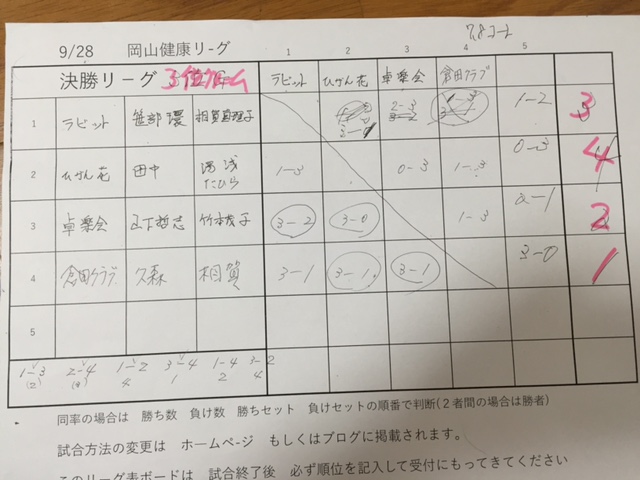 7,8コート
9/28 岡山健康リーグ
1 2 3 4 5
決勝リーグ 3位 ラビット ひがん花 卓楽会 倉田クラブ
1 ラビット 2-3 1-2 3
2 ひがん花 田中 湯浅 1-3 0-3 1-3 0-3 4
たひら
3 卓楽会 山下哲志 竹本茂子 3-2 3-0 1-3 2-1 2
4 倉田クラブ 久森 相賀 3-1 3-1 3-1 3-0 1
5
1-3 2-4 1-2 3-4 1-4 3-2
(2) (4) 4 1 2 4
同率の場合は 勝ち数 負け数 勝ちセット 負けセットの順番で判断(2者間の場合は勝者)
試合方法の変更は ホームページ もしくはブログに掲載されます。
このリーグ表ボードは 試合終了後 必ず順位を記入して受付にもってきてください